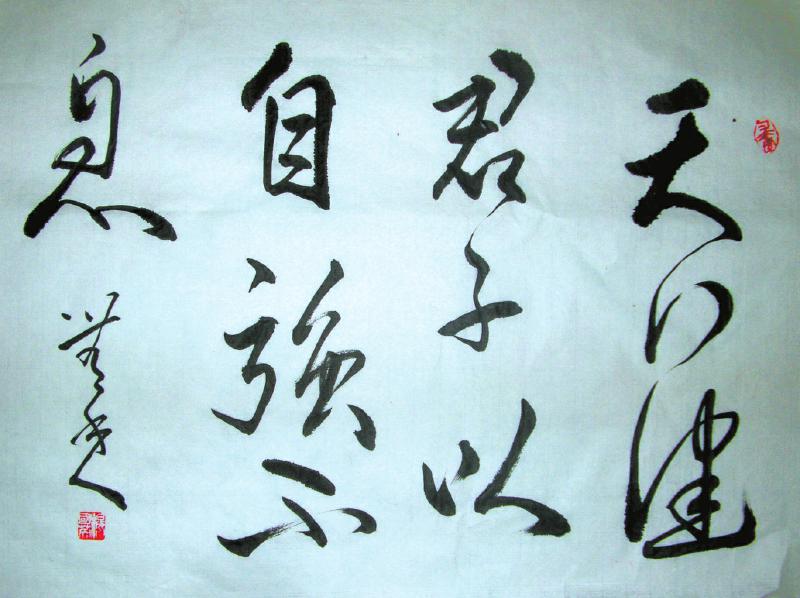 天行健
君子以
自強不
息